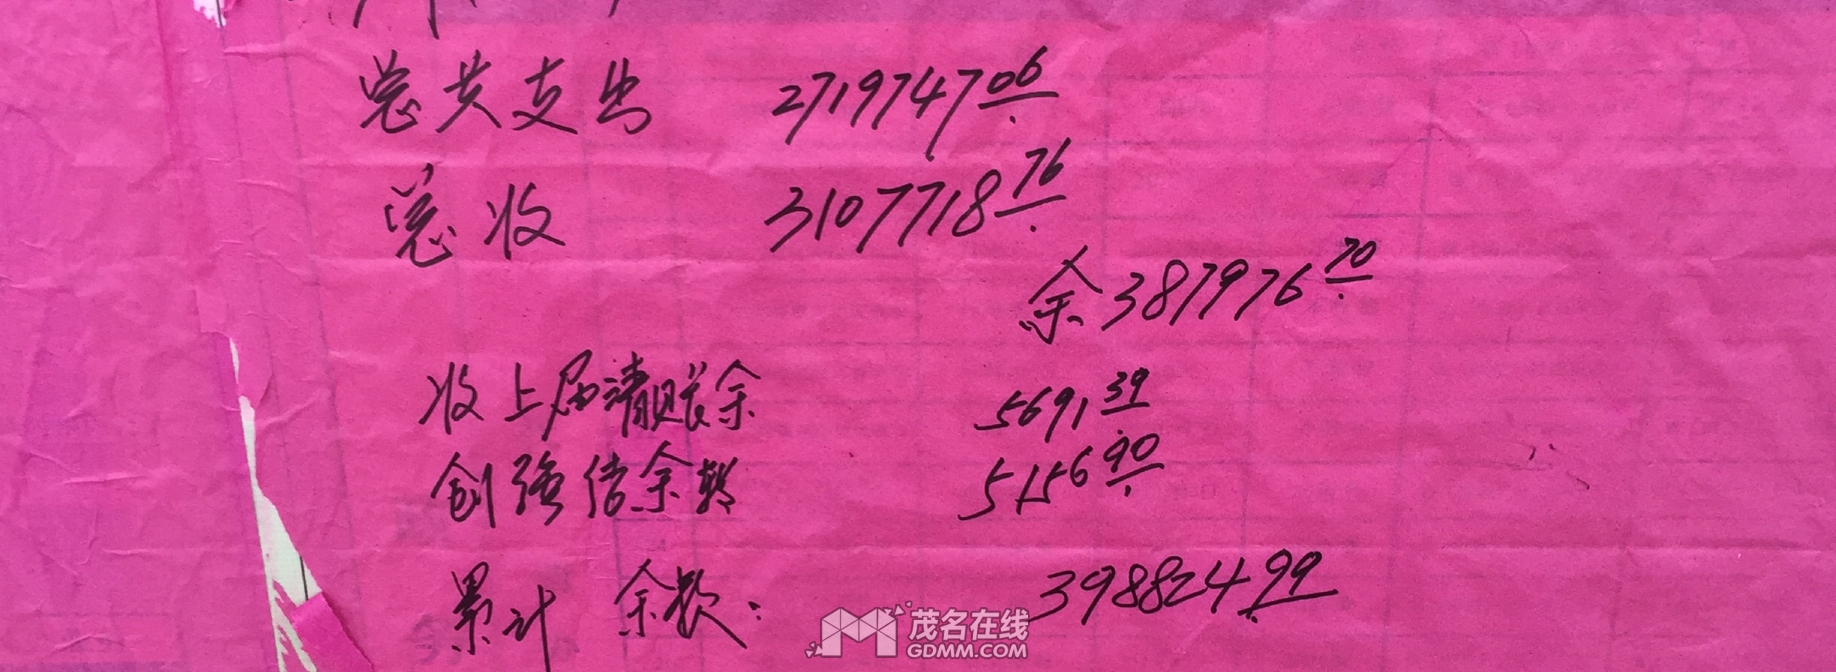 总共支出 2719747.06
总收 3107718.76
余387976.70
收上届清账余 5691.39
创强信余转 5156.90
累计 余款: 398824.99
茂名在线
GDMM.COM